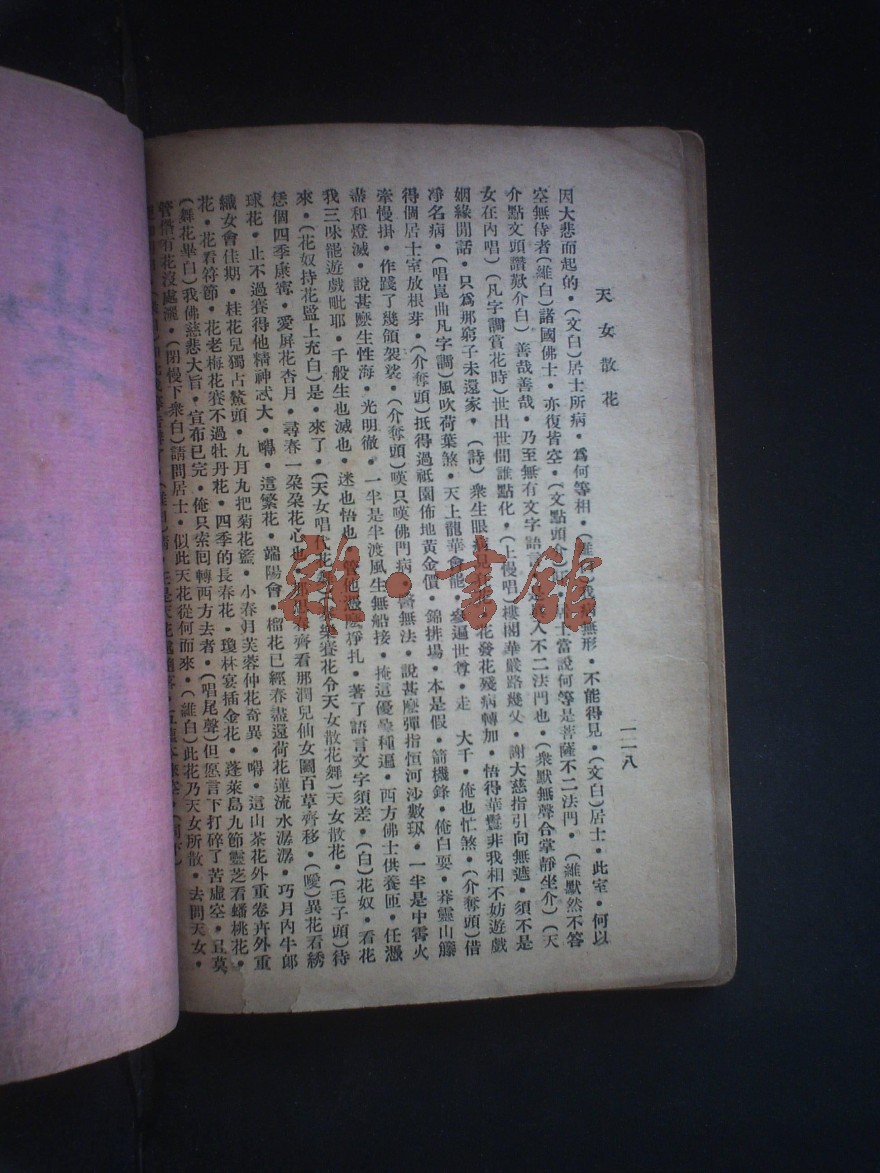 天女散花
一一八
因大悲而起的・(文白)居士所病・為何等相・(維白)我病無形・不能得見・(文白)居士・此室・何以
空無侍者(維白)諸國佛士・亦復皆空・(文點頭介 士當說何等是菩薩不二法門・(維默然不答
介點文頭讚歎介白)善哉善哉・乃至無有文字語言 入不二法門也・(衆默無聲合掌靜坐介)(天
女在內唱)(凡字調賞花時)世出世間誰點化・(上慢唱)樓閣華嚴路幾乂・謝大慈指引向無遮・須不是
姻緣閒話・只為那窮子未還家・(詩)衆生眼病見 花發花殘病轉加・悟得華鬘非我相不妨遊戲
凈名病・(唱崑曲凡字調)風吹荷葉煞・天上龍華會龍・參遍世尊・走 大千・俺也忙煞・(介奪頭)借
得個居士室放根芽・(介奪頭)抵得過祇園佈地黃金價・錦排場・本是假・箭機鋒・俺自耍・莽靈山籐
牽慢掛・作踐了幾領袈裟・(介奪頭)嘆只嘆佛門病・醫無法・說甚麼彈指恒河沙數・一半是中霤火
盡和燈滅・說甚麼生性海・光明徹・一半是半渡風生無船接・掩這優 種遍・西方佛士供養匝・任憑
我三味罷遊戲毗耶・千般生也滅也・迷也悟也・管他憑 掙扎・著了語言文字須差・(白)花奴・看花
來・(花奴持花監上充白)是・來了・(天女唱 花 賽花令天女散花舞)天女散花・(毛子頭)待
恁個四季康甯・愛屏花杏月・尋春一朶朶花心也・那 齊看那潤兒仙女圖百草齊移・(噯)異花看綉
球花・止不過賽得他精神忒大・嘚・這繁花・端陽會・榴花已經春盡還荷花蓮流水潺潺・巧月內牛郎
織女會佳期・桂花兒獨占鰲頭・九月丸把菊花籃・小春月芙蓉仲花奇異・嘚・這山茶花外重卷卉外重
花・花看符節・花老梅花賽不過牡丹花・四季的長春花・瓊林宴插金花・蓬萊島九節靈芝看蟠桃花・
(舞花畢白)我佛慈悲大旨・宣布已完・俺只索回轉西方去者・(唱尾聲)但愿言下打碎了苦虛空・且莫
管借有花沒處灑・(閉慢下衆白)請問居士・似此天花從何而來・(維白)此花乃天女所散・去問天女・
雜・書館